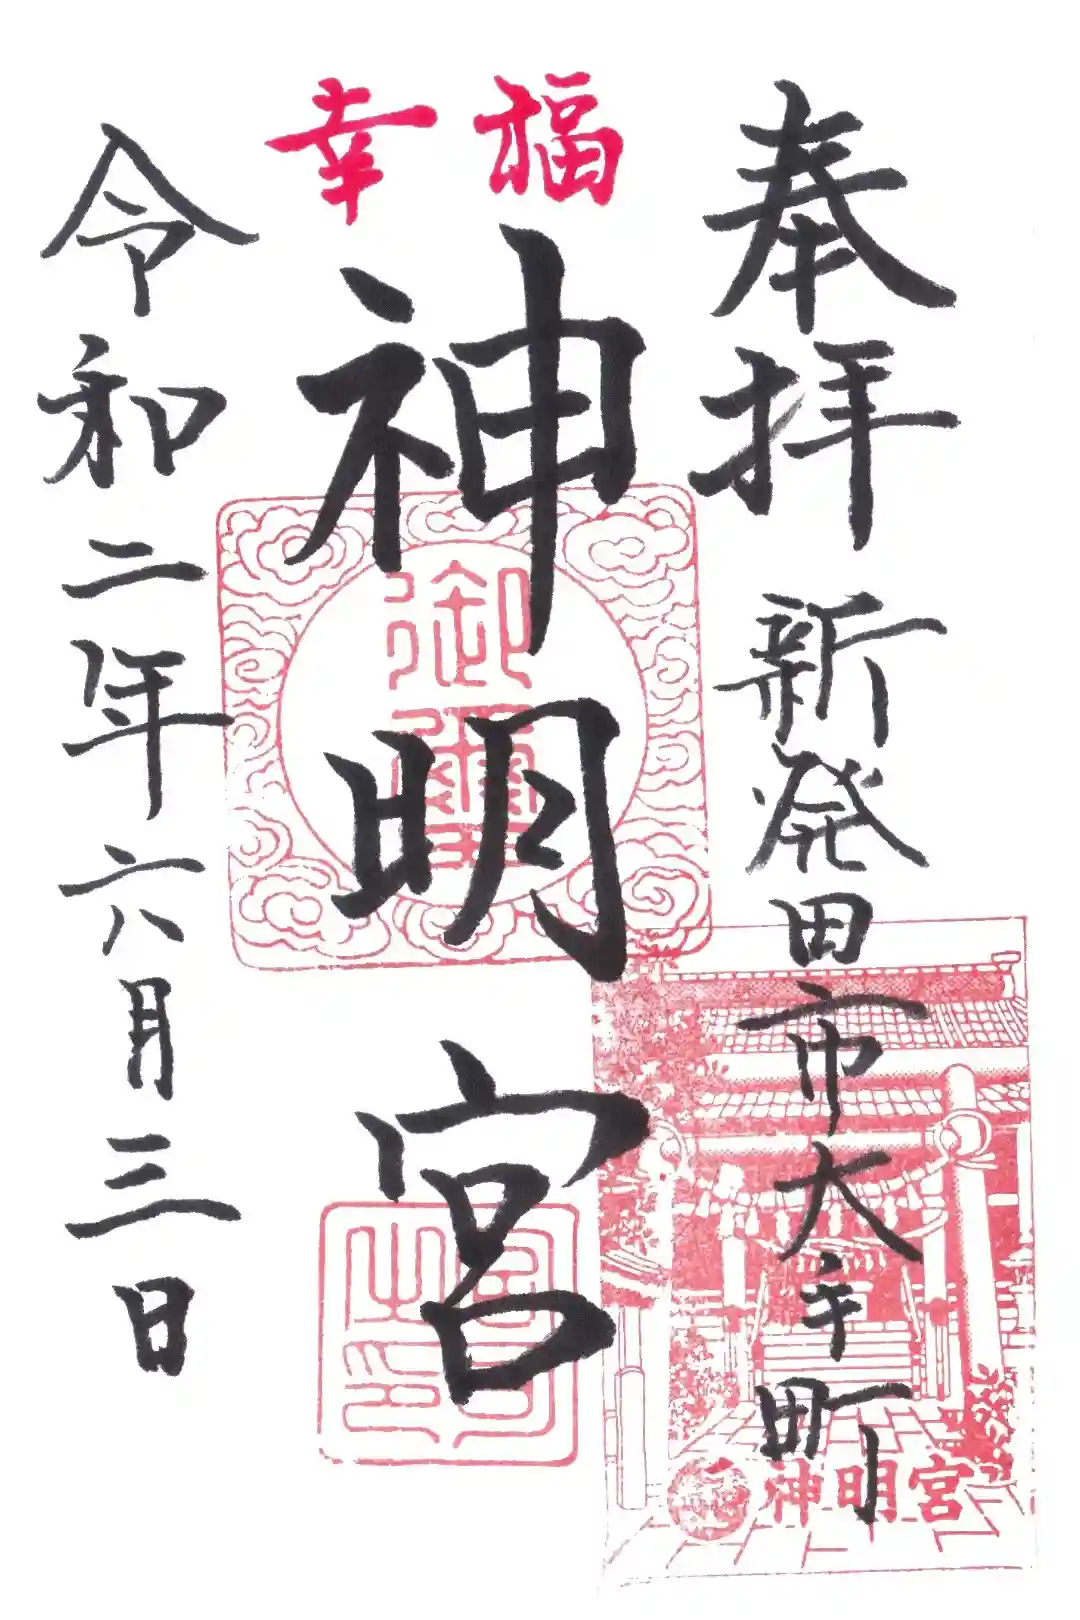 奉拝 新発田市大手町
幸福
神明宮
令和二年六月三日
御璽
神明宮